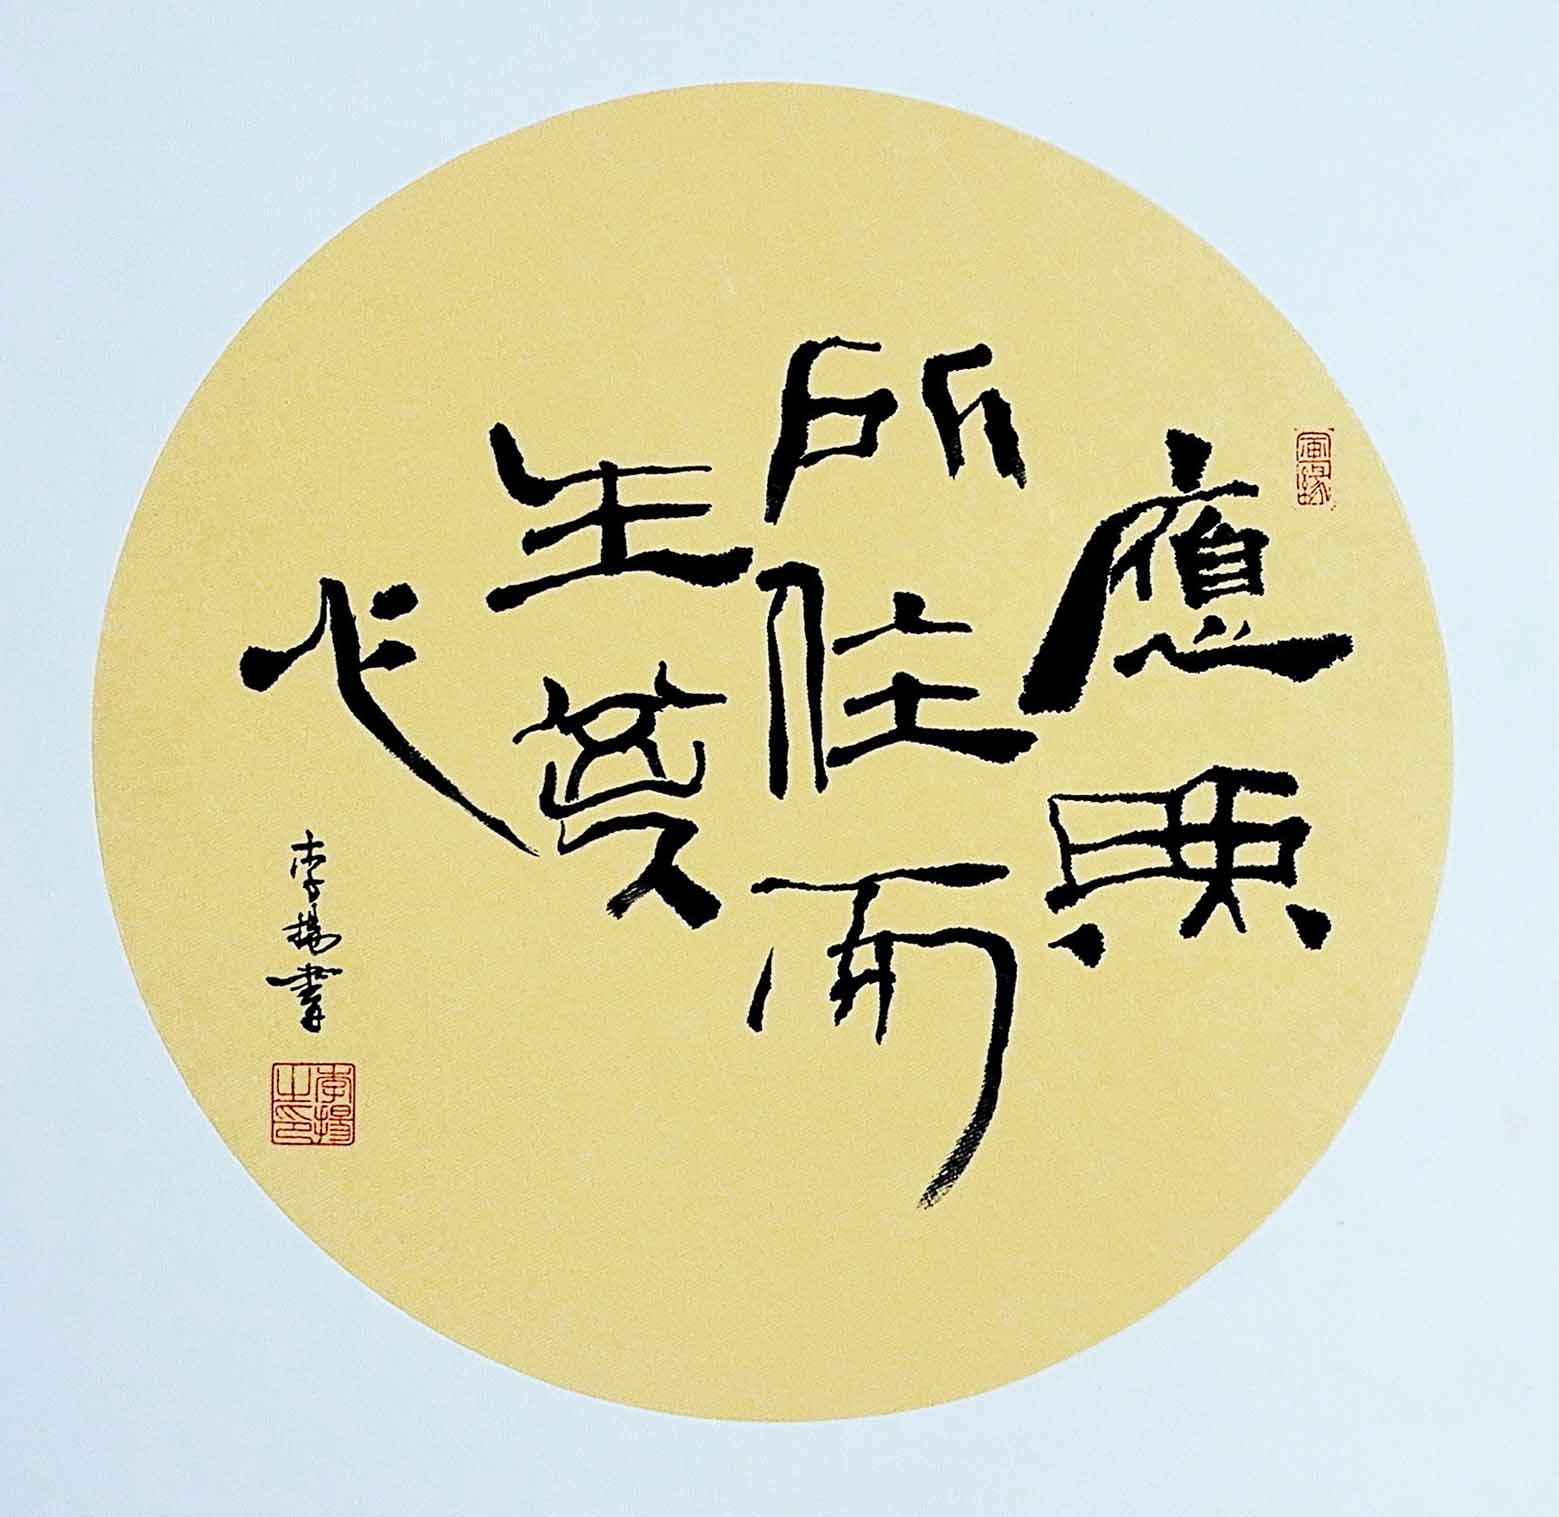 應無
所住而
生其
心
李揚書
李揚之印